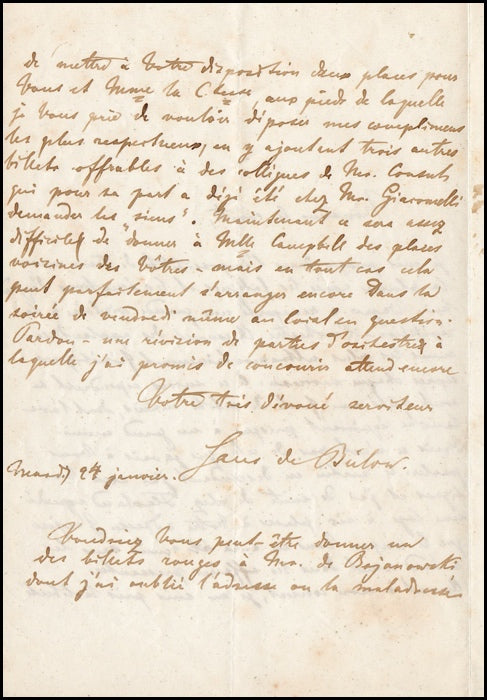 de mettre à Votre disposition deux places pour
Vous et Mme la Ctesse, aux pieds de laquelle
je Vous prie de vouloir déposer mes compliments
les plus respectueux, en y ajoutant trois autres
billets offrables à des collègues de Mr. Consul
qui pour sa part a déjà été chez Mr. Giacomelli
demander les siens". Maintenant ce sera assez
difficile de "donner à Mlle Campbell des places
voisines des Vôtres - mais en tout cas cela
peut parfaitement s'arranger encore dans la
soirée de vendredi même au local en question.
Pardon - une révision de parties d'orchestre à
laquelle j'ai promis de concourir attend encore
Votre très dévoué serviteur
Hans de Bülow
Mardi 24 janvier.
Voudriez Vous peut-être donner un
des billets rouges à Mr. de Bojanowski
dont j'ai oublié l'adresse ou la maladresse